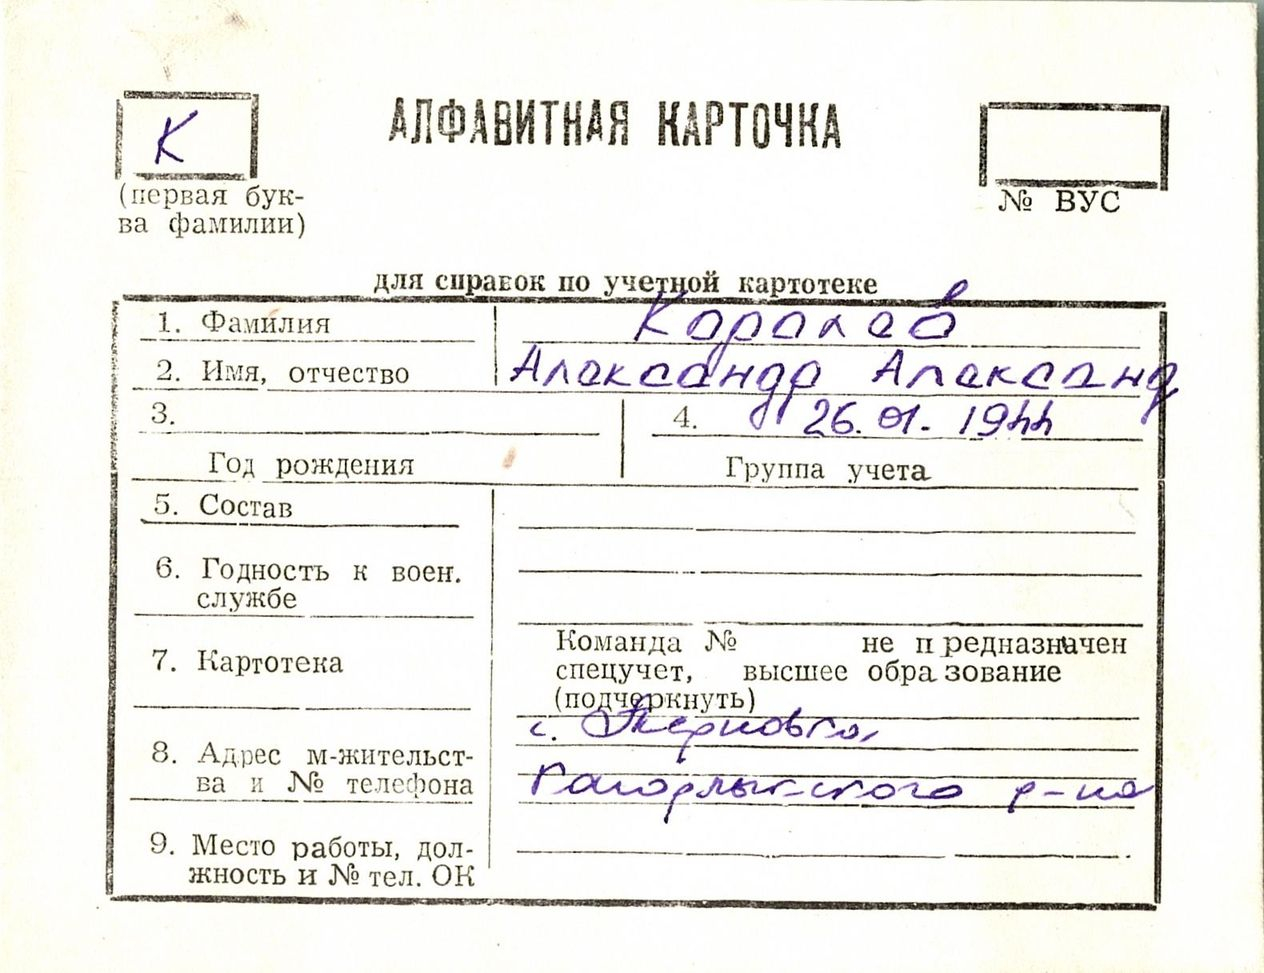 К
АЛФАВИТНАЯ КАРТОЧКА
(первая бук-
ва фамилии)
№ ВУС
для справок по учетной картотеке
1. Фамилия Королев
2. Имя, отчество Александр Александр
3. 4. 26.01.1944
Год рождения Группа учета
5. Состав
6. Годность к воен.
службе
7. Картотека
Команда № не предназначен
спецучет, высшее образование
(подчеркнуть)
8. Адрес м-жительст-
ва и № телефона
с. Терновка,
Кагарлыкского р-на
9. Место работы, дол-
жность и № тел. ОК